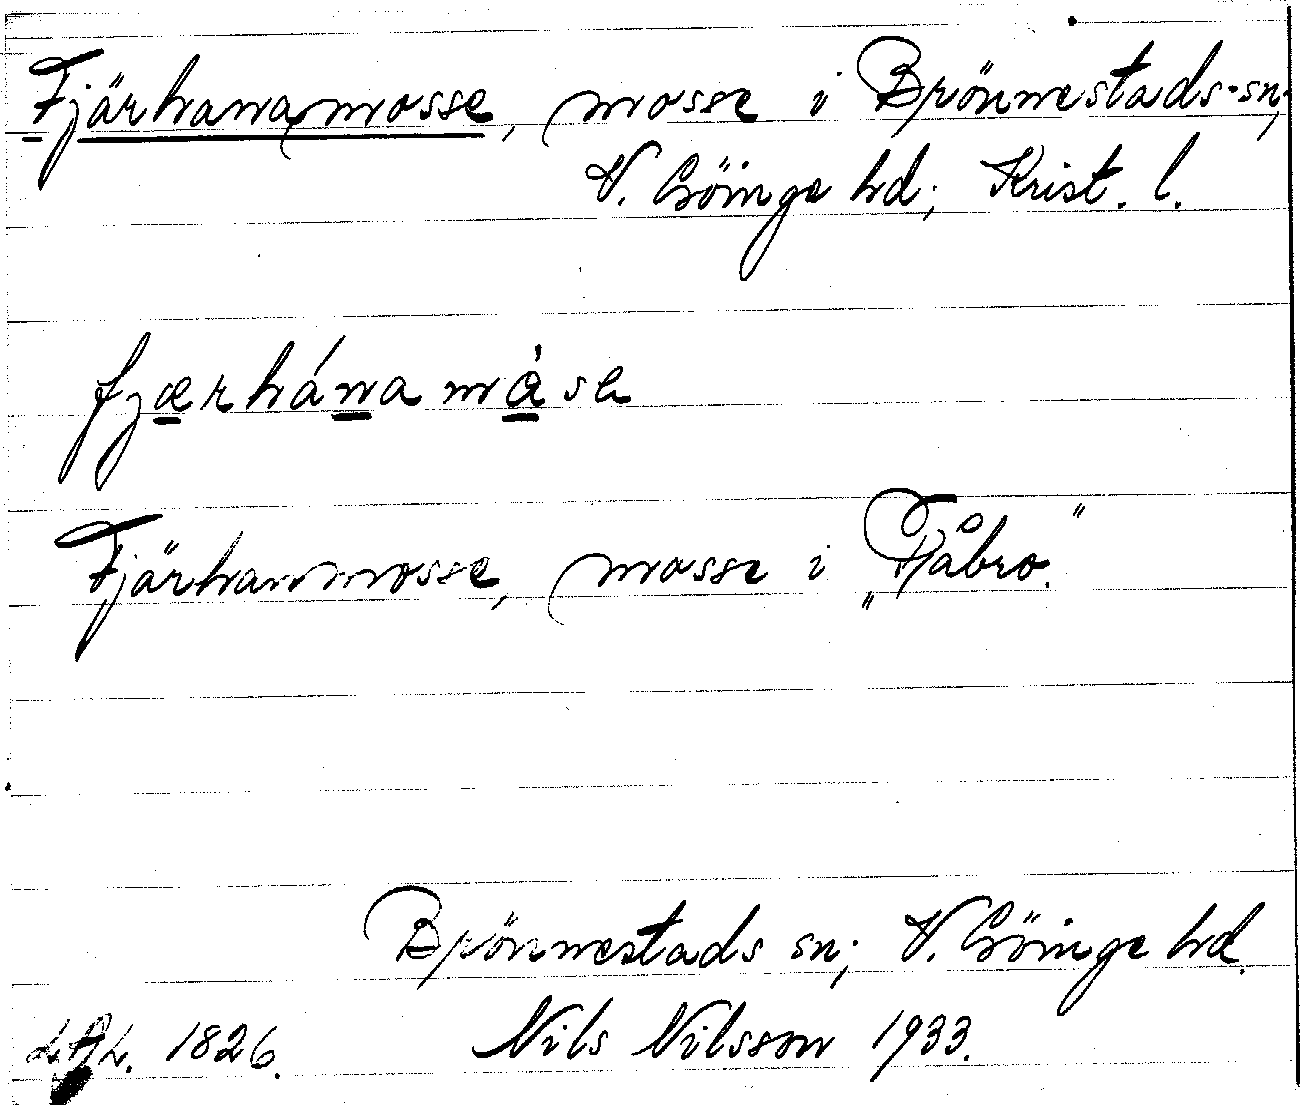 Fjärhanamosse, mosse i Brönnestads sn;
V. Göinge hd; Krist. l.
fjærhána màsa
Fjärhanmosse, mosse i „Tråbro."
Brönnestads sn; V. Göinge hd.
L.A.L. 1826. Nils Nilsson 1933.